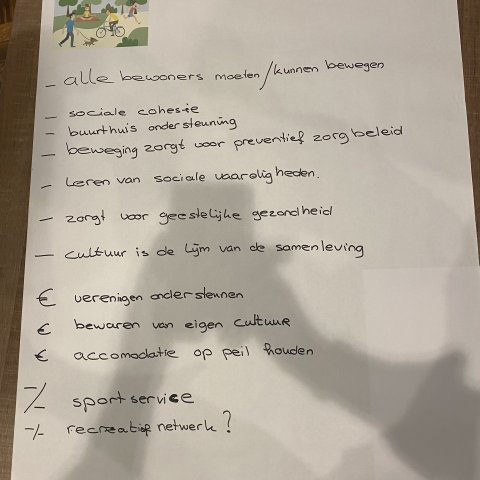 - alle bewoners moeten/kunnen bewegen
- sociale cohesie
- buurthuis ondersteuning
- beweging zorgt voor preventief zorgbeleid
- Leren van sociale vaardigheden.
- zorgt voor geestelijke gezondheid
- cultuur is de lijm van de samenleving
€ verenigen ondersteunen
€ bewaren van eigen cultuur
€ accomodatie op peil houden
-/- sportservice
-/- recreatief netwerk?